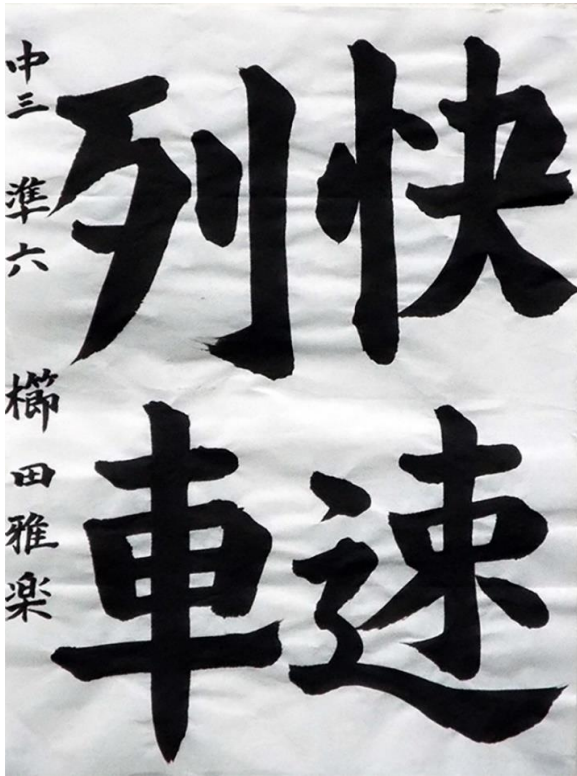 快速
列車
中三 準六 櫛田雅楽